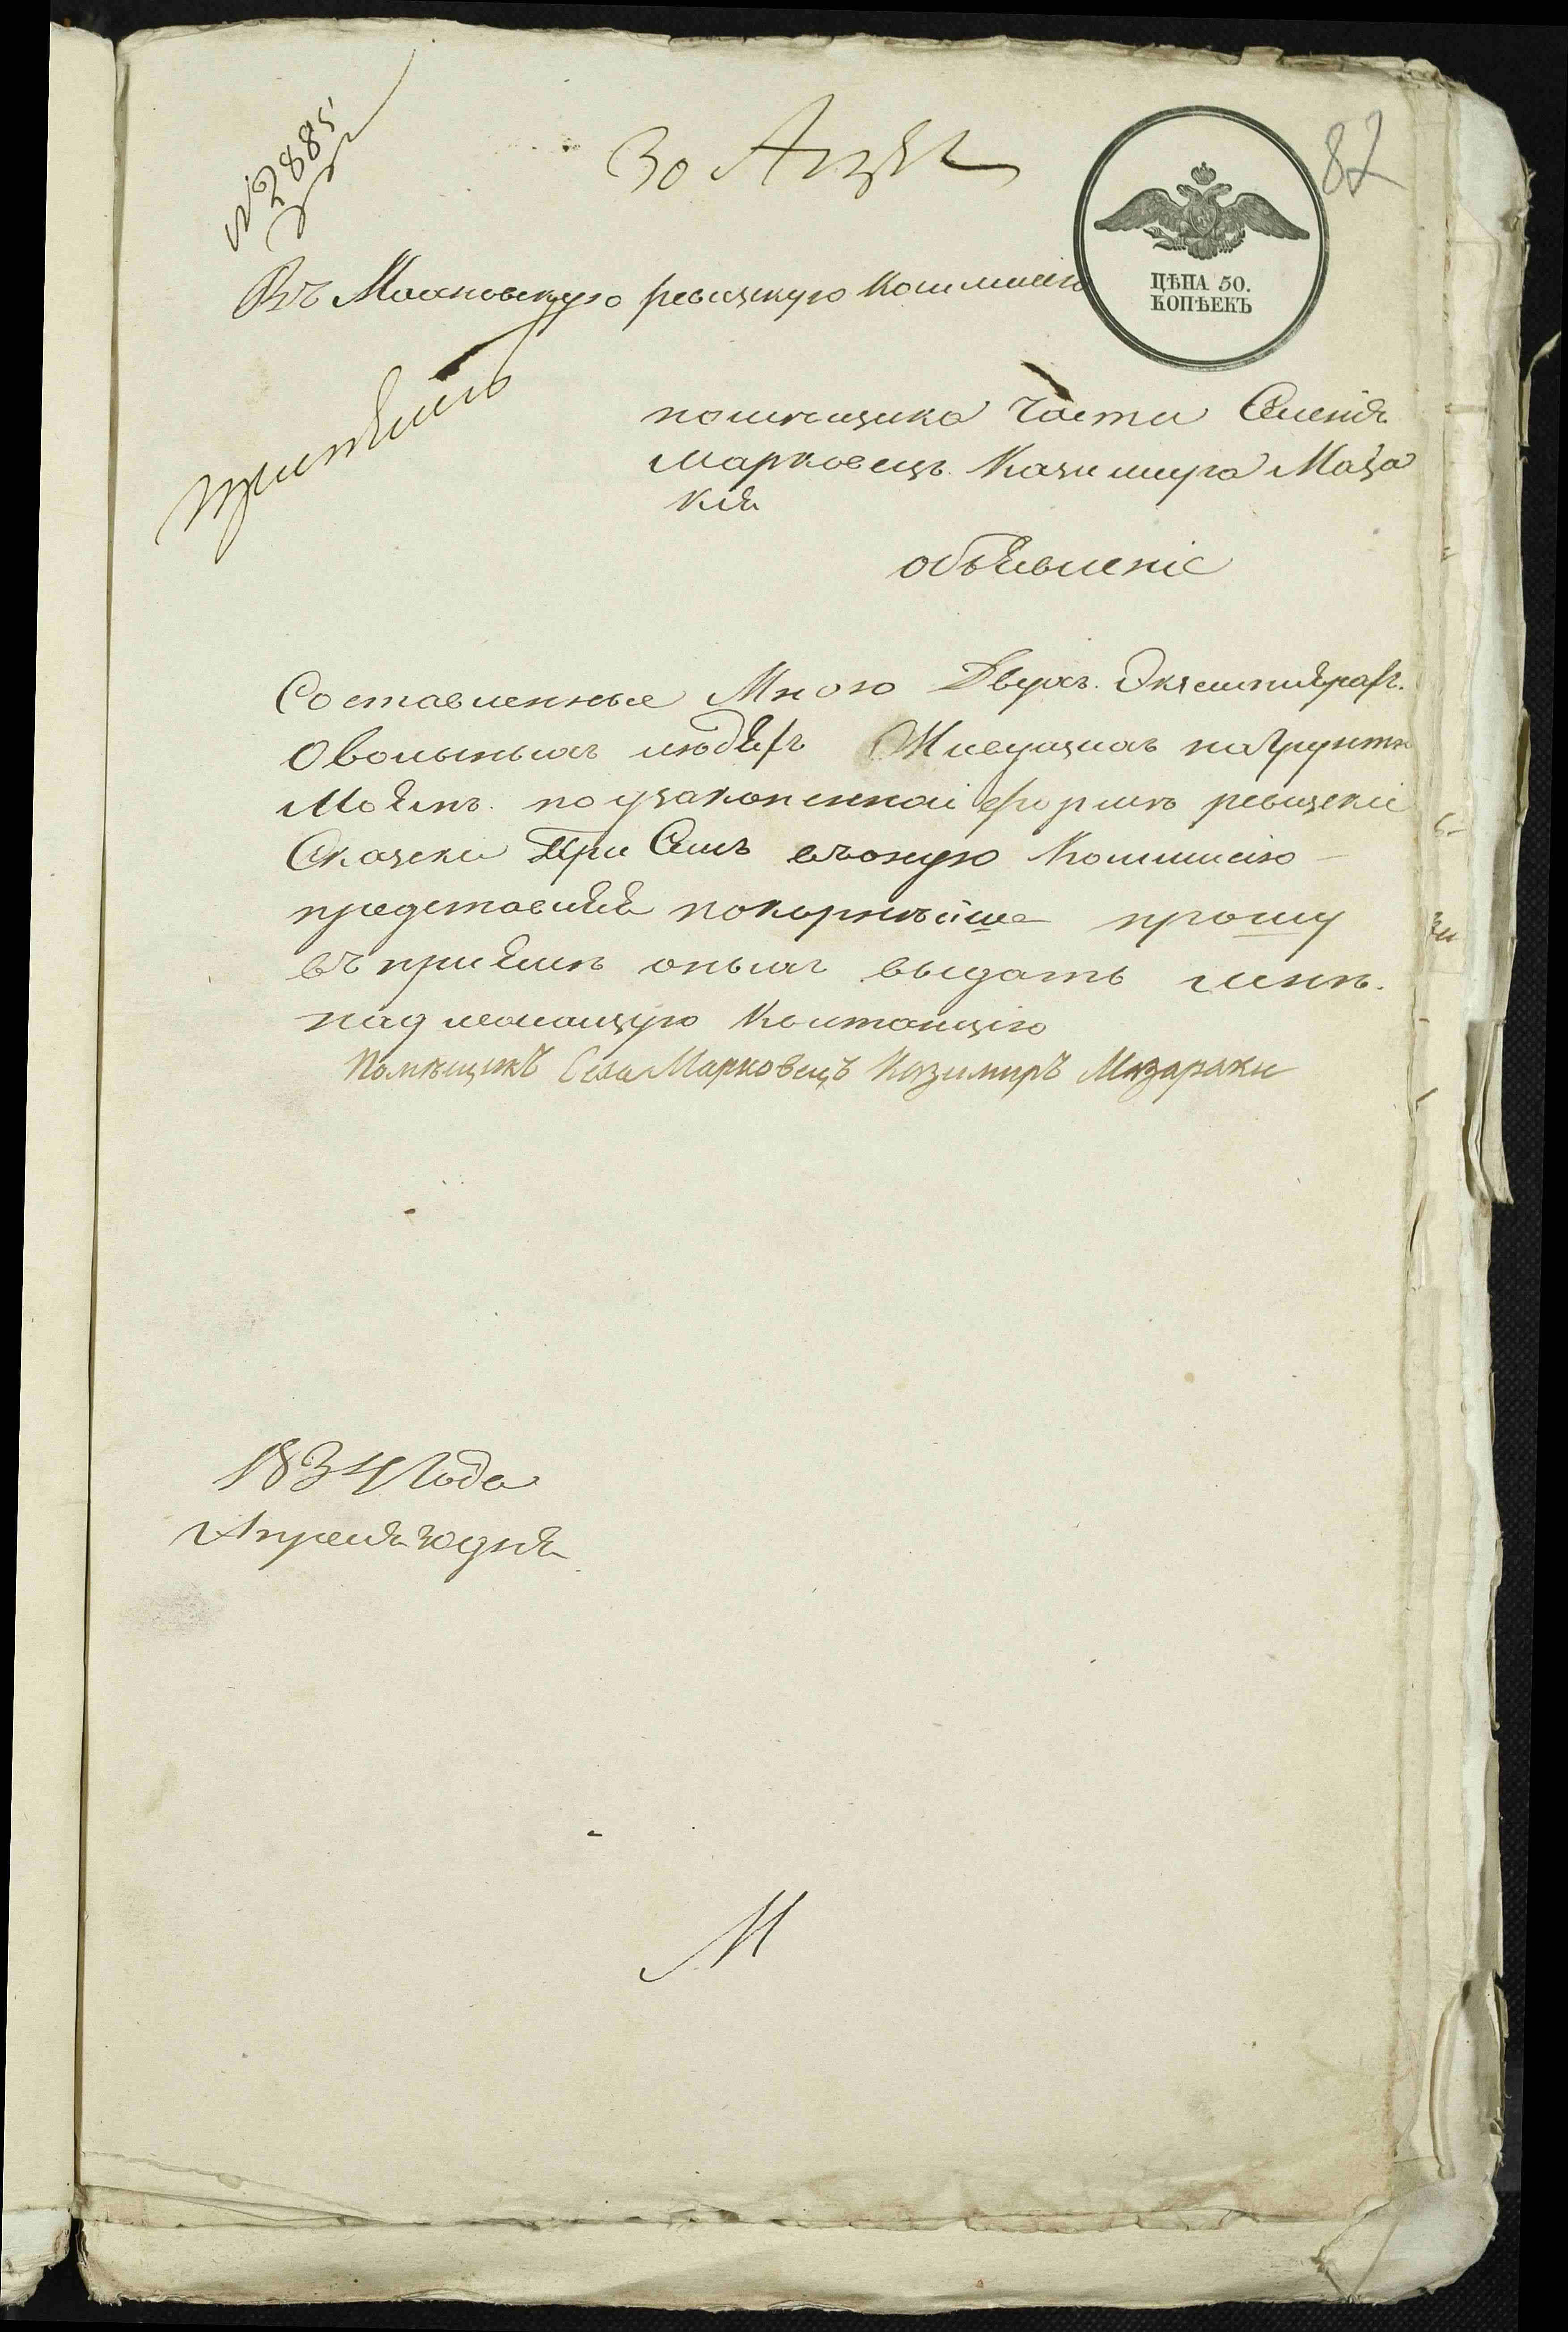 № 2885
30 Апрѣл
82
ЦѢНА 50.
КОПѢЕКЪ
Въ Махновскую ревизкую Коммисію
помѣщика части Селенія
Марковецъ Казимира Маза
кія
объявленіе
Составленные Мною Двухъ Экземплярахъ
О вольныхъ людяхъ Живущихъ на Грунтѣ
Моемъ по узаконенной формѣ ревизскіе
Сказски При Семъ въ оную Коммисію
представляя покорнѣйше прошу
въ пріемѣ оныхъ выдать мнѣ
надлежащую Квитанцію
Помѣщикъ Села Марковецъ Казимиръ Мазараки
1834 Года
Апреля 30 дня
М